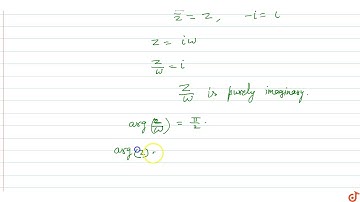 z̄ = z , -i = i
z = iω
z/ω = i
z/ω is purely imaginary.
arg(z/ω) = π/2 .
arg(z) -